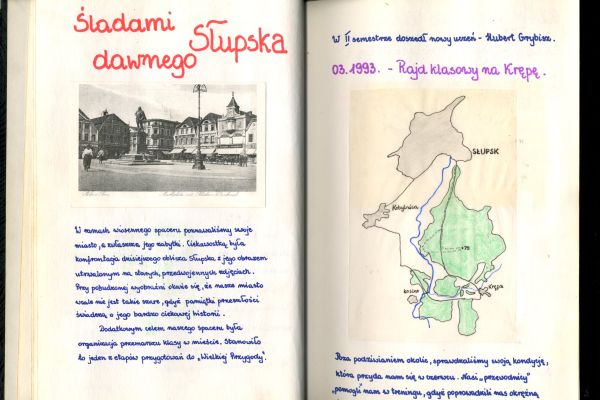 Śladami
dawnego Słupska
W ramach wiosennego spaceru poznawaliśmy swoje
miasto, a zwłaszcza jego zabytki. Ciekawostką była
konfrontacja dzisiejszego oblicza Słupska z jego obrazem
utrwalonym na starych, przedwojennych zdjęciach.
Przy pobudzonej wyobraźni okazuje się, że nasze miasto
wcale nie jest takie szare, gdyż pamiątki przeszłości
świadczą o jego bardzo ciekawej historii.
Dodatkowym celem naszego spaceru była
organizacja przemarszu klasy w mieście. Stanowiło
to jeden z etapów przygotowań do „Wielkiej Przygody".
W II semestrze doszedł nowy uczeń - Hubert Grybisz.
03.1993. - Rajd klasowy na Krępę.
SŁUPSK
Kobylnica
+79
Łosino
Krępa
Poza podziwianiem okolic, sprawdzaliśmy swoją kondycję,
która przyda nam się w czerwcu. Nasi „przewodnicy"
„pomogli" nam w treningu, gdyż poprowadzili nas okrężną